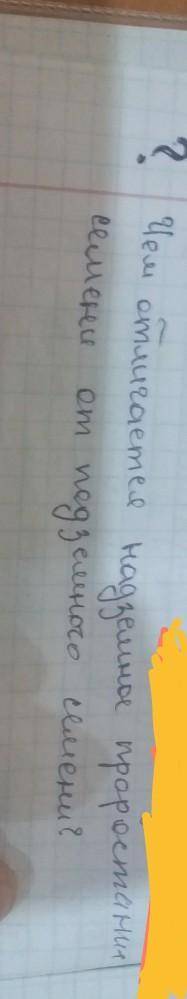 ? Чем отличается надземное проростании
семени от подземного семени?